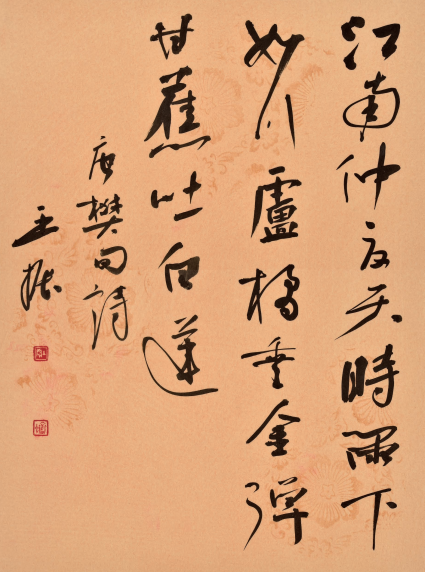 江南仲夏天時雨下
如川盧橘垂金彈
甘蕉吐白蓮
唐樊旬詩
王